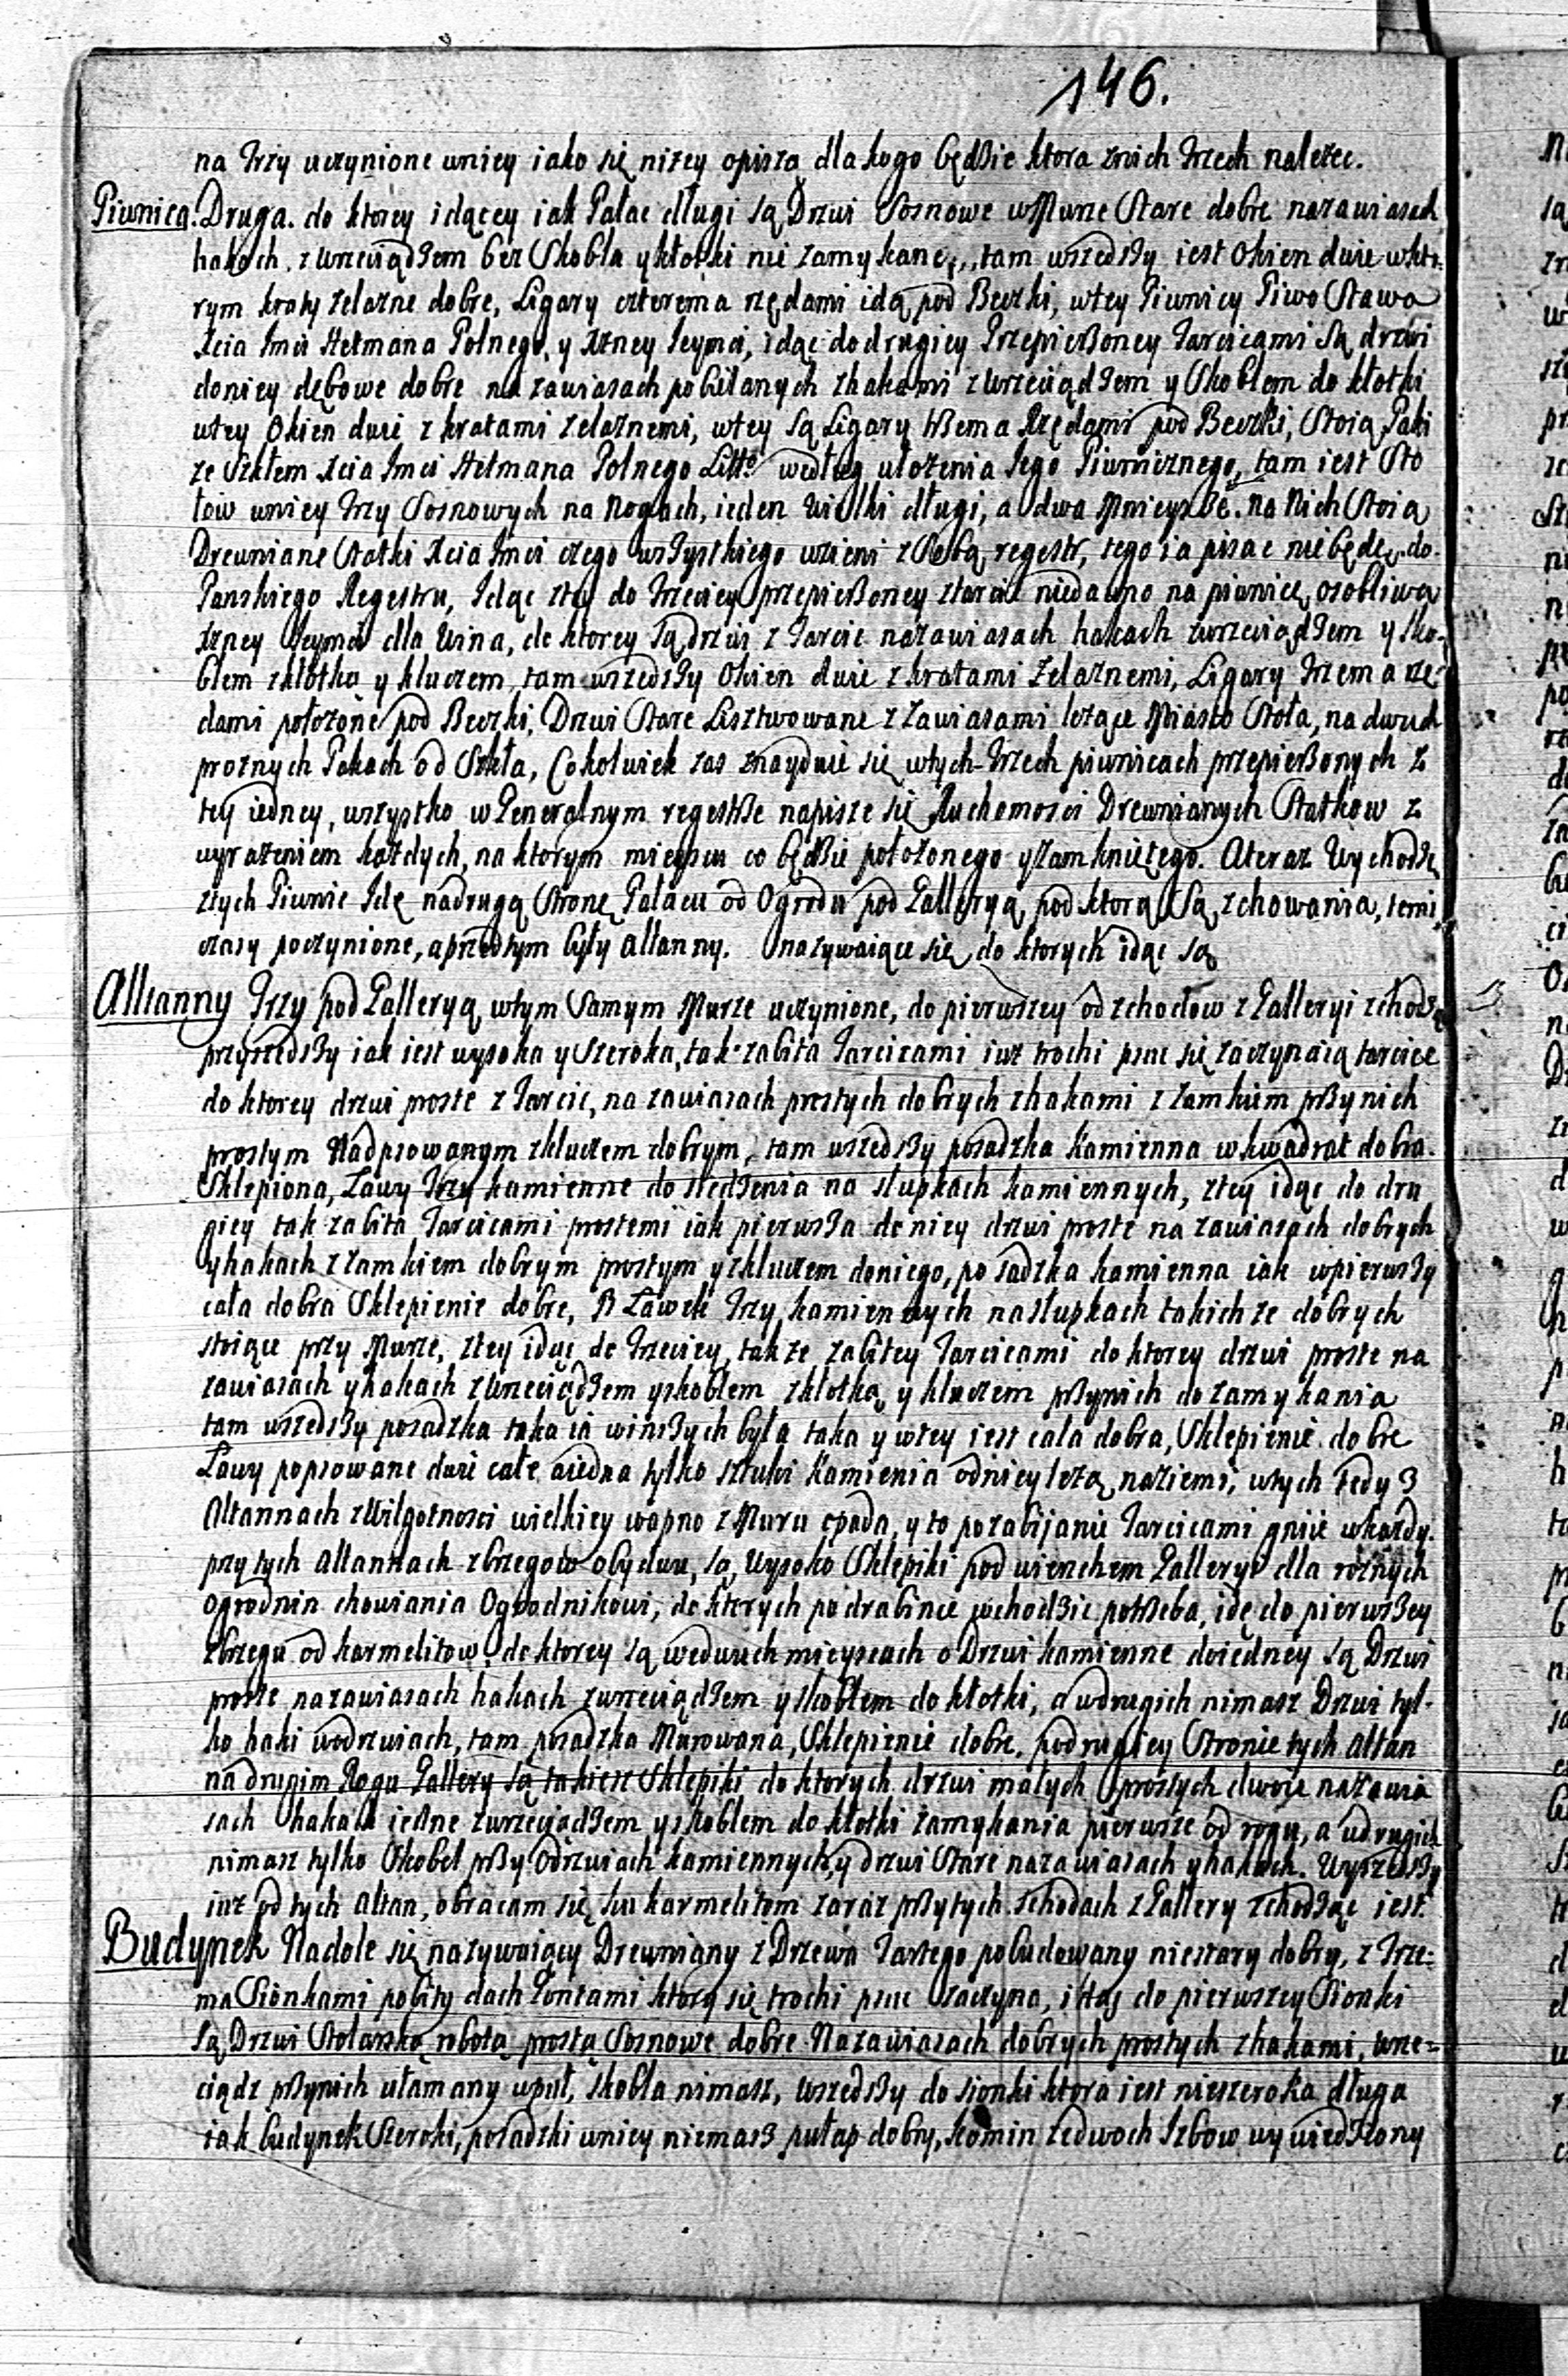 146.
na Trzy uczynione wniey iako się niżey opiszą dla kogo będzie ktora znich Trzech należec.
Piwnica. Druga. do ktorey idącey iak Pałac długi są Drzwi Sosnowe w Murze Stare dobre nazawiasach
hakach, zwrzeciądzem bez Skobla y kłotki nie zamykane, tam wszedszy iest Okien dwie wkto:
rym kraty żelazne dobre, Ligary czterema rzędami idą pod Beczki, wtey Piwnicy Piwo Stawa
Xcia Imci Hetmana Polnego, y Xzney Ieymci, idąc do drugiey Przepierzoney Tarcicami Są drzwi
doniey dębowe dobre na zawiasach pobielanych zhakami zwrzeciądzem y Skoblem do kłotki
wtey Okien dwie z kratami żelaznemi, wtey są Ligary Trzema Rzędami pod Beczki, Stoią Paki
ze Szkłem Xcia Imci Hetmana Polnego według ułożenia Iego Piwnicznego, tam iest Sto
łow wniey Trzy Sosnowych na Nogach, ieden Wielki długi, a dwa Mnieysze. na Nich Stoią
Drewniane Statki Xcia Imci czego wszystkiego wzieni z Sobą regestr, tego ia pisac niebędę, do
Panskiego Regestru, Idąc ztey do Trzeciey przepierzoney ztarcic niedawno na piwnicę osobliwą
Xzney Ieymci dla Wina, do ktorey Są drzwi z Tarcic nazawiasach hakach zwrzeciądzem y Sko:
blem zkłotką y kluczem, tam wszedszy Okien dwie z kratami Żelaznemi, Ligary Trzema rzę
dami połozone pod Beczki, Drzwi Stare Lisztwowane z Zawiasami leżące Miasto Stoła, na dwuch
proznych Pakach od Szkła, Cokolwiek zas znayduie się wtych Trzech piwnicach przepierzonych z
tey iedney, wszystko w Generalnym regestrze napisze się Ruchomosci Drewnianych Statkow z
wyrazeniem kazdych, na ktorym mieyscu co będzie położonego y zamkniętego. Ateraz Wychodzę
ztych Piwnic Idę nadrugą Stronę Pałacu od Ogrodu pod Galleryą pod ktorą Są zchowania, temi
czasy poczynione, aprzedtym były altanny. nazywaiące się do ktorych idąc są
Altanny Trzy pod Galleryą wtym Samym Murze uczynione, do pierwszey od zchodow z Galleryi zchodzą
przyszedszy iak iest wysoka y Szeroka, tak zabita Tarcicami iuz trochi psuc się zaczynaią tarcice
do ktorey drzwi proste z Tarcic, na zawiasach prostych dobrych zhakami z zamkiem przynich
prostym Nadpsowanym zkluczem dobrym, tam wszedszy posadzka Kamienna wkwadrat dobra.
Sklepiona, Ławy Trzy kamienne do siedzenia na słupkach kamiennych, ztey idąc do dru
giey tak zabita Tarcicami prostemi iak pierwsza doniey drzwi proste na zawiasach dobrych
yhakach z zamkiem dobrym prostym y zkluczem doniego, posadzka kamienna iak wpierwszy
cała dobra Sklepienie dobre, Ławek Trzy, kamiennych nasłupkach takichze dobrych
stoiące przy Murze, ztey idąc do Trzeciey, także zabitey Tarcicami do ktorey drzwi proste na
zawiasach yhakach zwrzeciądzem yskoblem zkłotką y kluczem przynich do zamykania
tam wszedszy posadzka taka ia winszych była taka y wtey iest cała dobra, Sklepienie dobre
Ławy popsowane dwie całe aiedna tylko sztuki Kamienia odniey leżą naziemi, wtych Tedy 3
Altannach zWilgotnosci wielkiey wapno z Muru opada, y to pozabijanie Tarcicami gniie wkazdy.
przytych altannach zbrzegow obydwu, są, Wysoko Sklepiki pod wierzchem Gallerys dla roznych
Ogrodnin chowania Ogrodnikowi, do ktorych podrabince wchodzic potrzeba, idę do pierwszey
zbrzegu od karmelitow do ktorey są wedwuch mieyscach o Drzwi kamienne doiedney są Drzwi
proste nazawiasach hakach zwrzeciądzem y skoblem do kłotki, a wdrugich nimasz Drzwi tyl:
ko haki wodrzwiach, tam posadzka Murowana, Sklepienie dobre. podrugiey Stronie tych altan
na drugim Rogu Gallery są takiesz Sklepiki do ktorych drzwi małych prostych dwoie nazawia
sach hakach iedne zwrzeciądzem yskoblem do kłotki zamykania pierwsze od rogu, a udrugich
nimasz tylko Skobel przy Odrzwiach kamiennych, y drzwi Stare nazawiasach yhakach. Wyszedszy
iuz od tych altan, obracam się ku karmelitom zaraz przytych schodach z Gallery zchodząc iest
Budynek Nadole się nazywaiący Drewniany z Drzewa Tartego pobudowany niestary dobry, z Trze:
ma Sionkami pobity dach Gontami ktory się trochi psuc zaczyna, idąc do pierwszey Sionki
Są Drzwi Stolarską robotą prostą Sosnowe dobre Nazawiasach dobrych prostych zhakami, wrze=
ciądz przynich ułamany wpuł, skobla nimasz, wszedszy do sionki ktora iest nieszeroka długa
iak budynek Szeroki, posadzki wniey niemasz pułap dobry, komin zedwoch Izbow wywiedziony